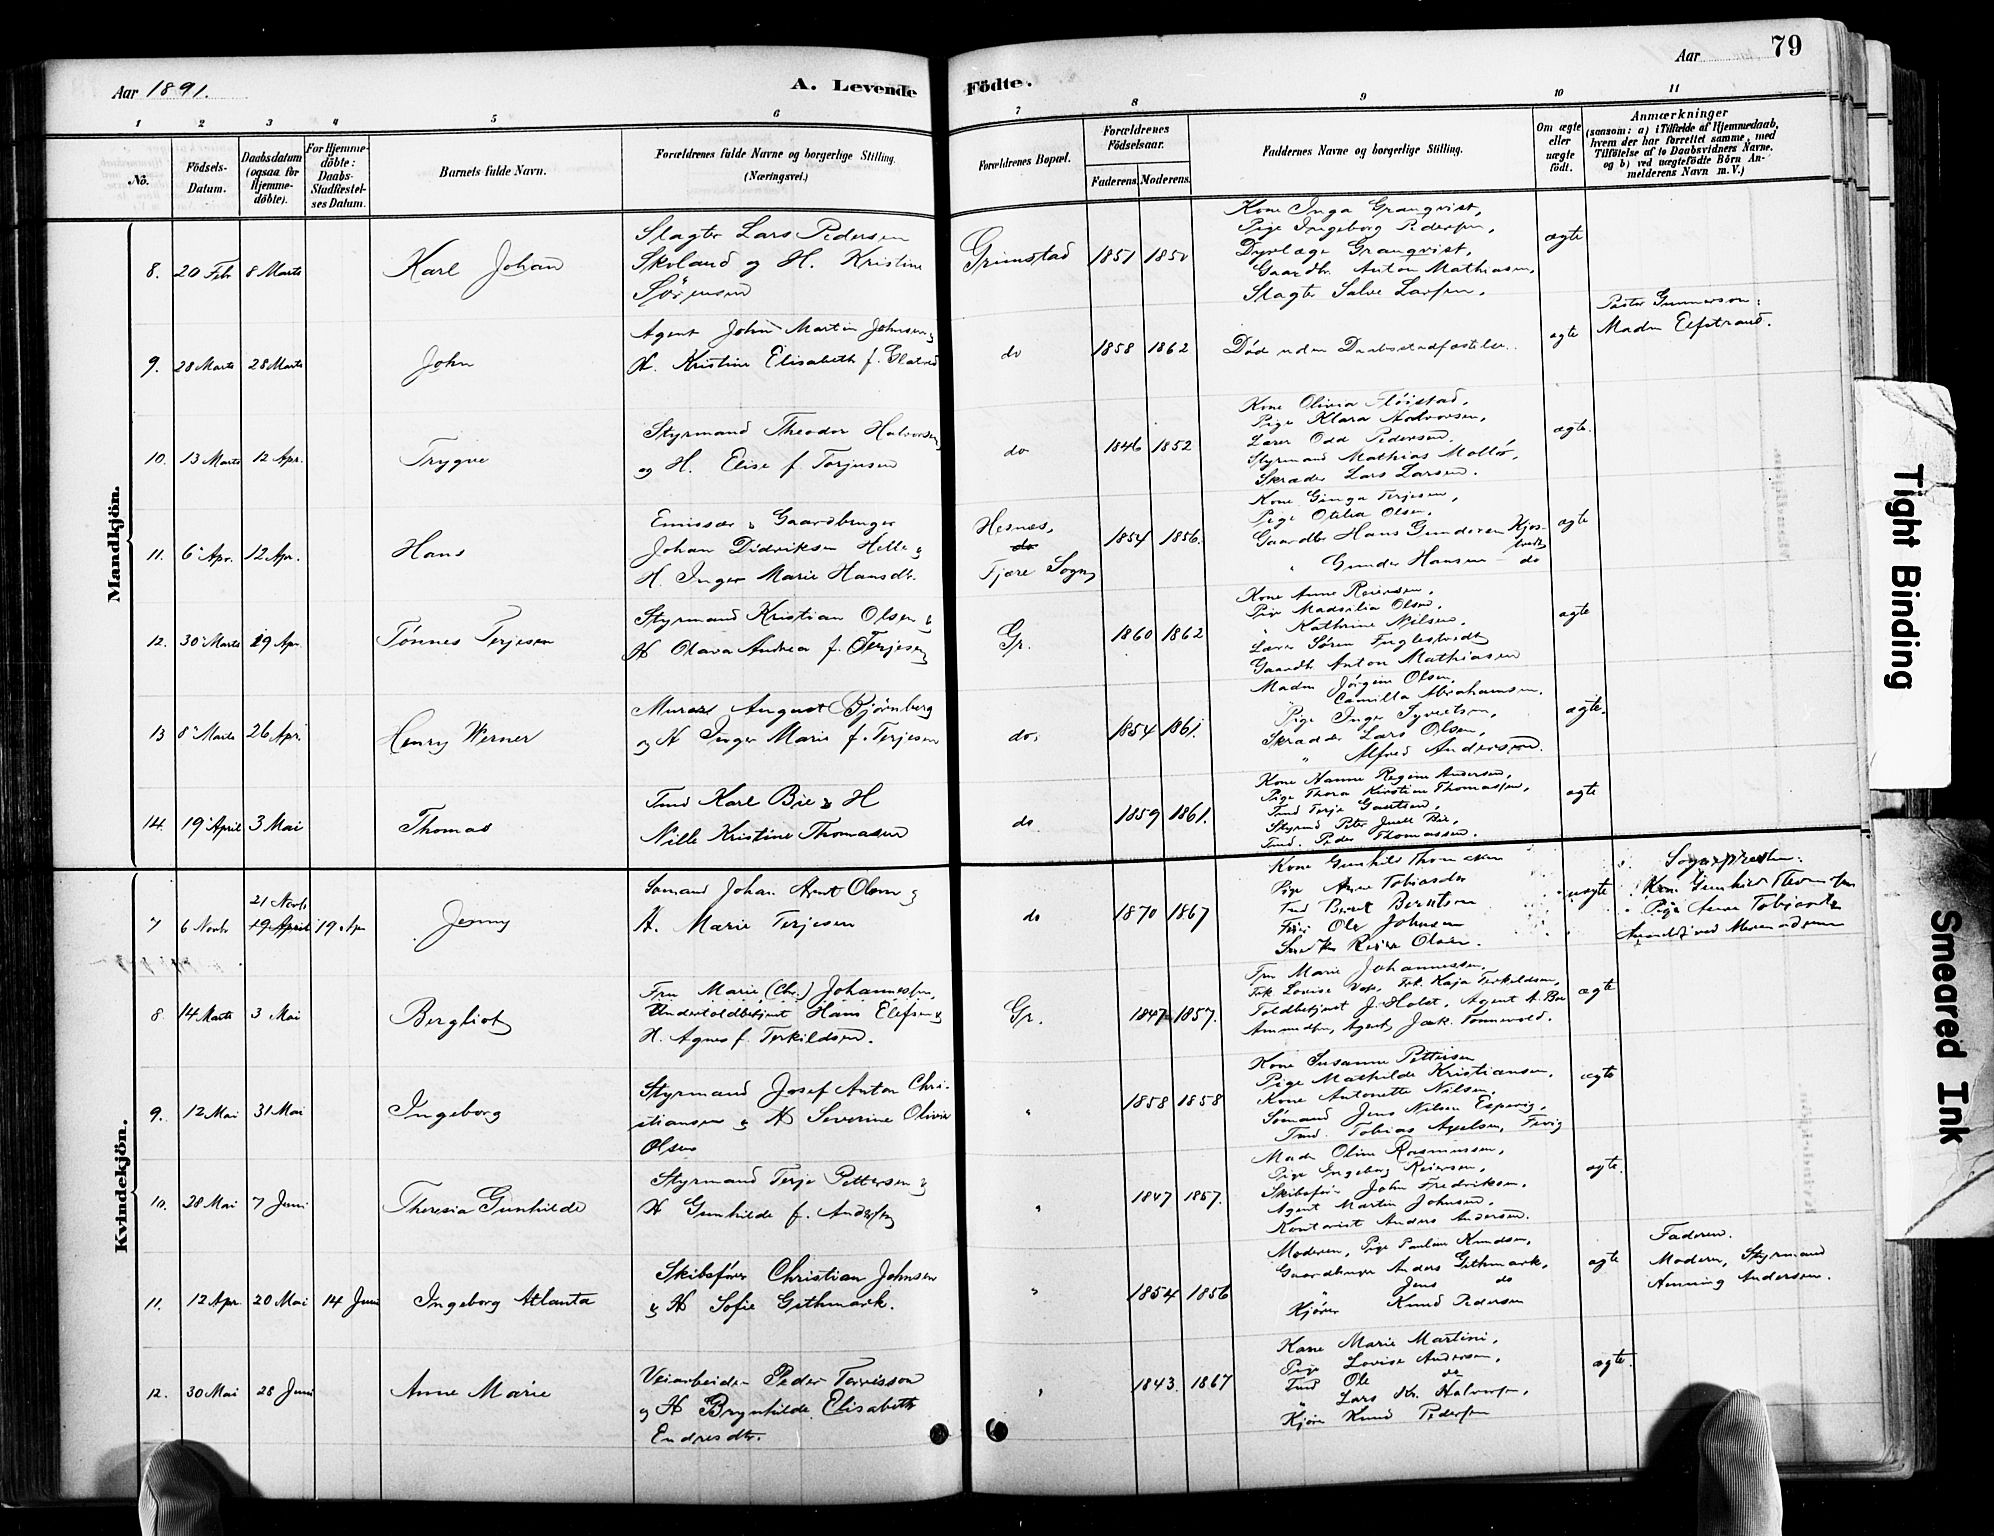 79
Aar 1891.
A. Levende Födte.
Aar
1 2 3 4 5 6 7 8 9 10 11
No.
Födsels-Datum.
Daabsdatum (ogsaa for Hjemme-döbte).
For Hjemme-döbte: Daabs-Stadfæstel-ses Datum.
Barnets fulde Navn.
Forældrenes fulde Navne og borgerlige Stilling. (Næringsvei.)
Forældrenes Bopæl.
Forældrenes Födselsaar.
Faderens. Moderens.
Faddernes Navne og borgerlige Stilling.
Om ægte eller uægte födt.
Anmærkninger
(saasom: a) i Tilfælde af Hjemmedaab, hvem der har forrettet samme, med Tilföielse af to Daabsvidners Navne, og b) ved uægtefödte Börn An-melderens Navn m. V.)
Mandkjön.
8. 20 Feb. 8 Marts
Karl Johan
Slagter Lars Pedersen
Skoland og H. Kristine
Sörensen
Grimstad 1851 1850
Kone Inga Granqvist,
Pige Ingeborg Pedersen,
Dyrlæge Granqvist,
Gaardb. Anton Mathiasen,
Slagter Salve Larsen,
ægte
9. 28 Marts 28 Marts
John
Agent John Martin Johnsen &
H. Kristine Elisabeth f.
do 1858 1862
Död uden Daabsstadfæstelse.
ægte
Pastor Gunnerson:
Madm
10. 13 Marts 12 Apr.
Trygve
Styrmand Theodor Halvorsen
og H. Elise f. Terjesen
do 1846 1852
Kone Olivia Flöistad,
Pige Klara Halvorsen,
Lærer Odd Pedersen,
Styrmand Mathias Mollö,
Skræder Lars Larsen.
ægte.
11. 6 Apr. 12 Apr.
Hans
Emissær & Gaardbruger
Johan Didriksen Helle &
H. Inger Marie Hansdtr.
Hesnes,
do
Fjære Sogn
1854 1856.
Kone Ginga Terjesen,
Pige Otilia Olsen,
Gaardbr Hans Gundersen
" Gunder Hansen do
ægte
12. 30 Marts 19 Apr.
Tönnes Terjesen
Styrmand Kristian Olsen &
H Olava Andrea f. Terjesen
Gr. 1860 1862
Kone Anne Reiersen,
Pige Madsilia Olsen,
" Kathrine Nilsen,
Lærer Sören Fuglestvedt
Gaardb. Anton Mathiasen
ægte
13 8 Marts 26 Apr.
Henry Werner
Murer August Björnberg
og H Inger Marie f. Terjesen
do, 1854 1861.
Madm Jörgine Olsen,
" Camilla Abrahamsen.
Pige Inger Syvertsen,
Skrædder Lars Olsen,
" Alfred Andersson.
ægte.
14. 19 April 3 Mai
Thomas
Tmd Karl Bie & H
Nille Kristine Thomasen
do 1859 1861.
Kone Hanne Regine Andersen,
Pige Thora Kirstine Thomassen,
Tmd Terje
Styrmd Peter Juell Bie,
Tmd. Peder Thomassen.
ægte
Kvindekjön.
7 6 Novb 21 Novb
19 April 19 Apr
Jenny
Sömand Johan Olsen &
H. Marie Terjesen
do 1870 1867
Kone Gunhild Thomasen
Pige Anne Tobiasdtr
Tmd Berntsen
Ole Johnsen
Reier Olsen.
uægte
Sognepresten:
Kone Gunhild
Pige Anne Tobiasdtr
8 14 Marts 3 Mai
Bergliot
Fru Marie (Chr.) Johannesen,
Undertoldbetjent Hans Elefsen &
H. Agnes f. Terkildsen.
Gr. 1847 1857.
Fru Marie Johannessen,
Frk Lovise Frk. Kaja Terkildsen,
Toldbetjent J. Holst, Agent A. Ber
Agent Jak. Tönnevold.
ægte
9. 12 Mai 31 Mai
Ingeborg
Styrmand Josef Anton Chri-
stiansen & H Severine Olivia
Olsen
" 1858 1858
Kone Susanne Pettersen
Pige Mathilde Kristiansen,
Kone Antonette Nilsen,
Sömand Jens Nilsen Espevig,
Tmd. Tobias Axelsen, Fevig
ægte
10. 28 Mai 7 Juni
Theresia Gunhilde
Styrmand Terje Pettersen &
H Gunhilde f. Andersen
" 1847 1857.
Madm Oline Rasmussen,
Pige Ingeborg Reiersen,
Skibsförer John Fredriksen,
Agent Martin Johnsen,
Kontorist Anders Andersen.
ægte.
11. 12 Apr. 20 Mai 14 Juni
Ingeborg Atlanta
Skibsförer Christian Johnsen
& H Sofie Githmark.
" 1854 1856
Moderen, Pige Pauline Knudsen,
Gaardbruger Anders Githmark,
" Jens do
Kjörer Knud Pedersen
ægte
Faderen.
Moderen, Styrmand
Henning Andersen.
12. 30 Mai 28 Juni
Anne Marie
Veiarbeider Peder Torrisson
og H Brynhilde Elisabeth
Endresdtr.
" 1843. 1867
Kone Marie Martini,
Pige Lovise Andersen,
Tmd Ole do
" Lars Halvorsen,
Kjörer Knud Pedersen
ægte.
Tight Binding
Smeared Ink